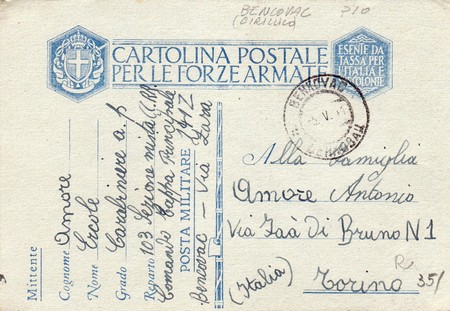 BENCOVAC 210
(CIRILICO)
CARTOLINA POSTALE
PER LE FORZE ARMATE
ESENTE DA
TASSA PER
L'ITALIA E
COLONIE
BENKOVAC
V.
Alla Famiglia
Amore Antonio
Via Saà di Bruno N 1
(Italia) Torino
R 35/
Mittente
Cognome Amore
Nome Ercole
Grado Carabiniere a. p
Reparto 103 Sezione mista CC.RR.
Comando Tappa Principale
POSTA MILITARE 141Z
Bencovac - Via Zara